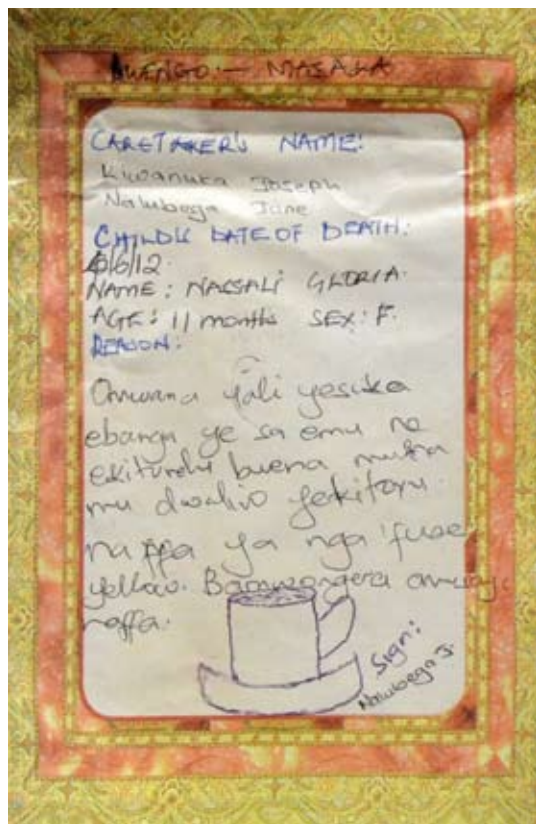 MASAKA
CARETAKER'S NAME:
Kiwanuka Joseph
Nalubega Jane
CHILD'S DATE OF DEATH:
6/6/12
NAME: NASSALI GLORIA
AGE: 11 months SEX: F.
REASON:
Omwana yali yesika
ebanga ye sa emu no
ekitundu buena
mu
naffa ya nga fuse
yellow. Bamwongera
naffa.
Sign:
Nalubega J.